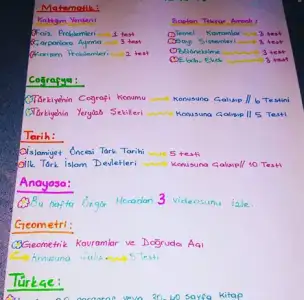 Matematik :
Kaldığım Yerden!
Baştan Tekrar Amaçlı
Faiz Problemleri 2 test
Temel Kavramlar 3 test
Çarpanlara Ayırma 3 test
Sayı Sistemleri 3 test
Karışım Problemleri 2 test
Bölünebilme 3 test
3 test
Coğrafya :
Türkiye'nin Coğrafi Konumu Konusuna Çalışıp // 6 Testini
Türkiye'nin Yeryüzü Şekilleri Konusuna Çalışıp // 5 Testi
Tarih :
İslamiyet Öncesi Türk Tarihi 5 testi
İlk Türk İslam Devletleri Konusuna Çalışıp // 10 Testi
Anayasa :
Bu hafta Özgür Hocadan 3 videosunu izle
Geometri :
Geometrik Kavramlar ve Doğruda Açı
Konusunu 5 Testi
Türkçe :
paragraf veya 30, 40 sayfa kitap